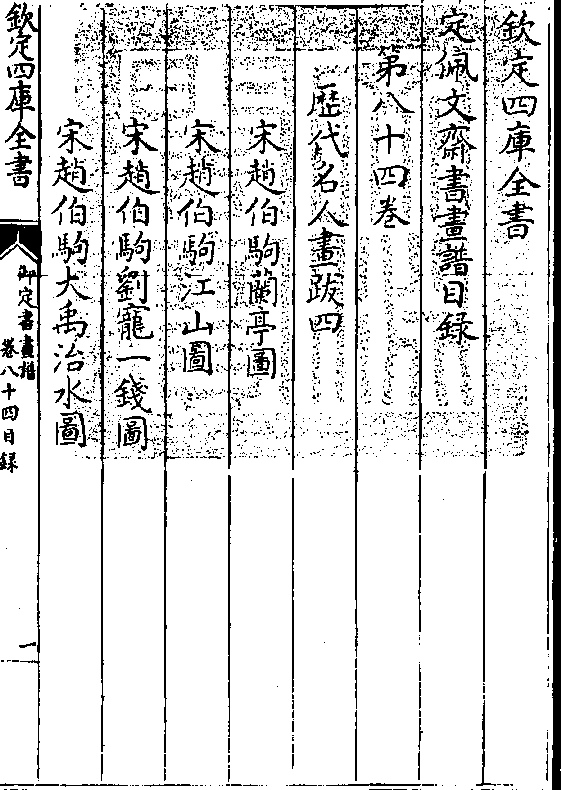 欽定四庫全書
定佩文齋書畫譜目錄
第八十四卷
歷代名人畫跋四
宋趙伯駒蘭亭圖
宋趙伯駒江山圖
宋趙伯駒劉寵一錢圖
宋趙伯駒大禹治水圖
欽定四庫全書
御定書畫譜
卷八十四目錄
一